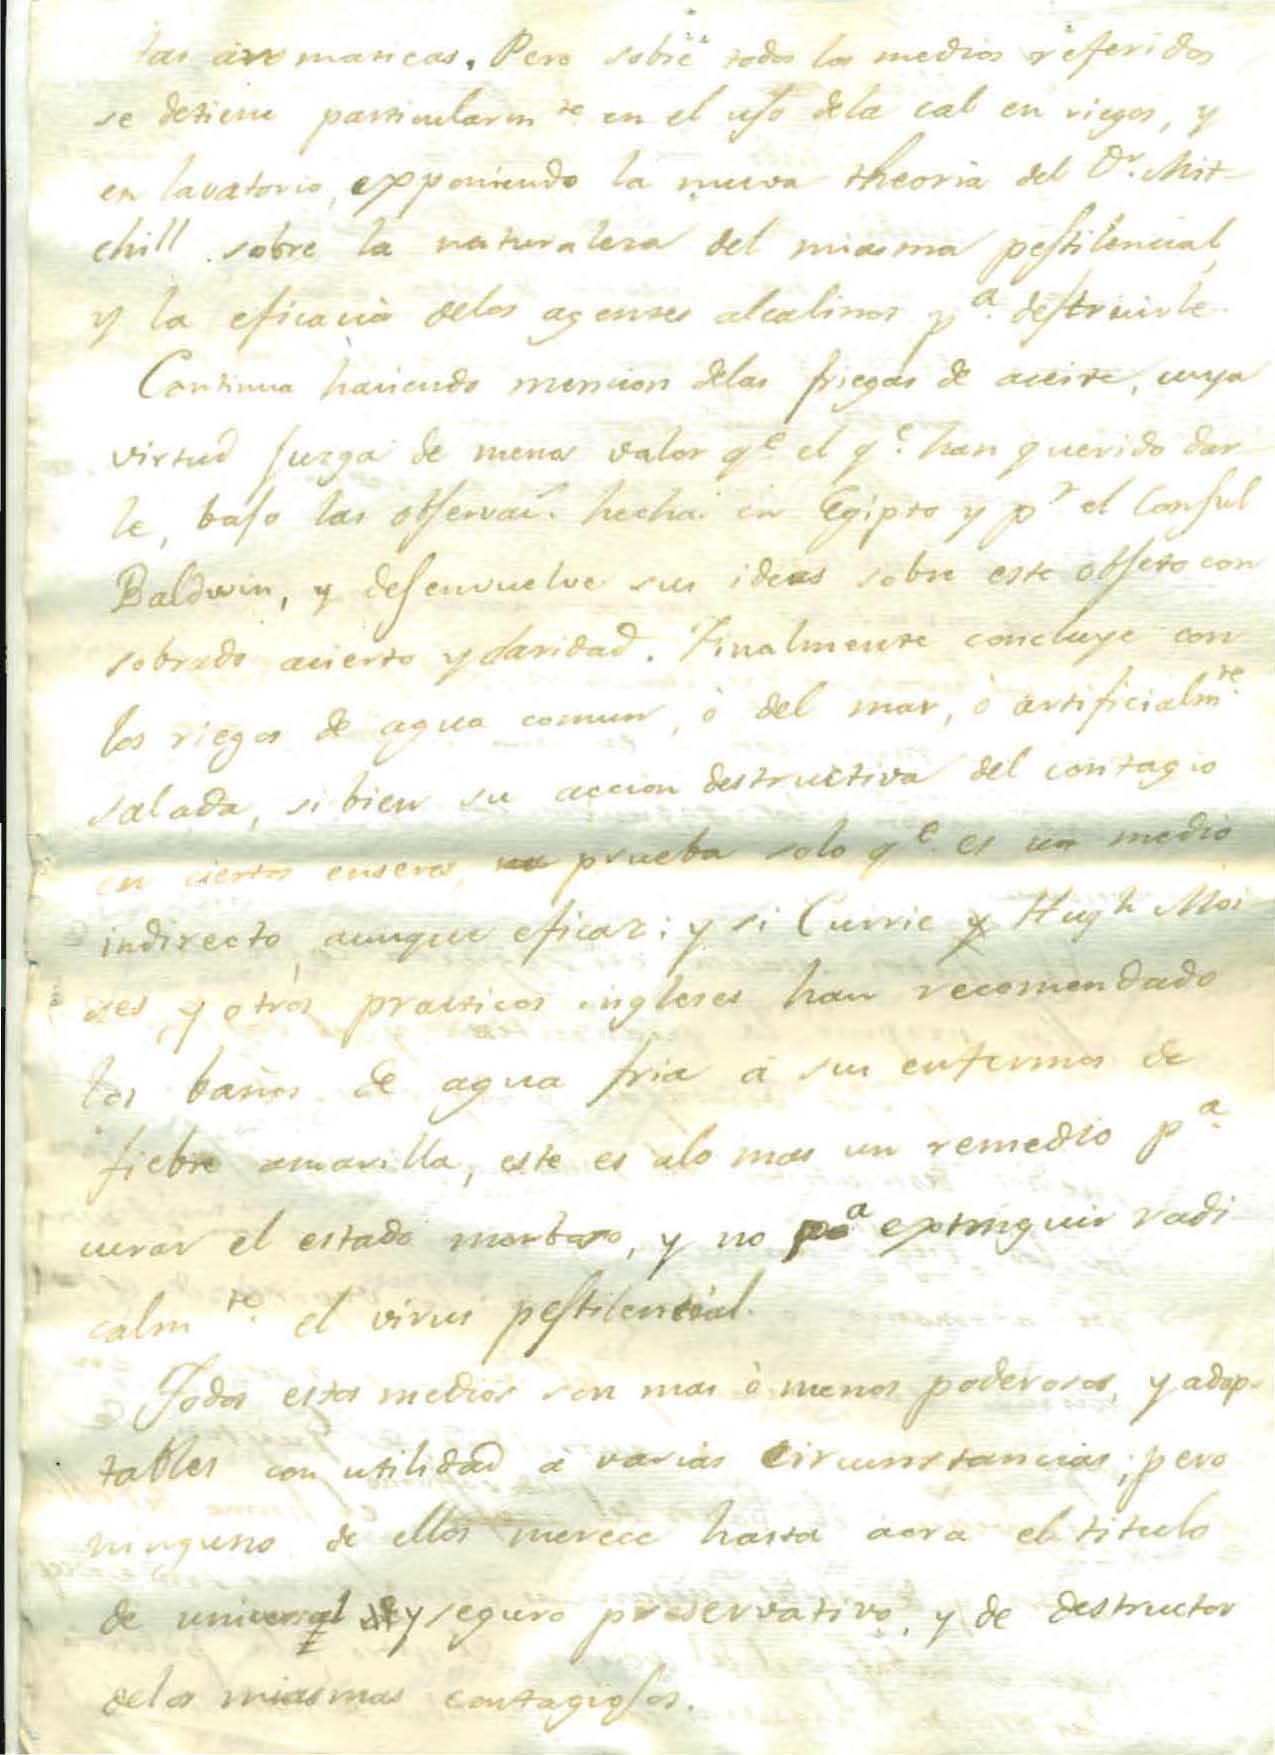 tas aromaticas. Pero sobre todos los medios referidos
se detiene particularm.te en el uso dela cal en riegos, y
en lavatorio, exponiendo la nueva theoria del Dr. Mit-
chill sobre la naturaleza del miasma pestilencial,
y la eficacia delos agentes alcalinos p.a destruirle.
Continua haciendo mencion delas friegas de aceite, cuya
virtud juzga de menor valor q.e el q.e han querido dar
le, bajo las observac.s hechas en Egipto y p.r el Consul
Baldwin, y desenvuelve sus ideas sobre este objeto con
sobrado acierto y claridad. Finalmente concluye con
los riegos de agua comun, ò del mar, ò artificialm.te
salada, si bien su accion destructiva del contagio
en ciertos enseres, prueba solo q.e es un medio
indirecto aunque eficaz; y si Currie y Hugh Moi
ses y otros practicos ingleses han recomendado
los baños de agua fria à sus enfermos de
fiebre amarilla, este es alo mas un remedio p.a
curar el estado morboso, y no p.a extinguir radi
calm.te el virus pestilencial.
Todos estos medios son mas ò menos poderosos, y adap-
tables con utilidad à varias circunstancias; pero
ninguno de ellos merece hasta aora el titulo
de universal y seguro preservativo, y de destructor
delos miasmas contagiosos.